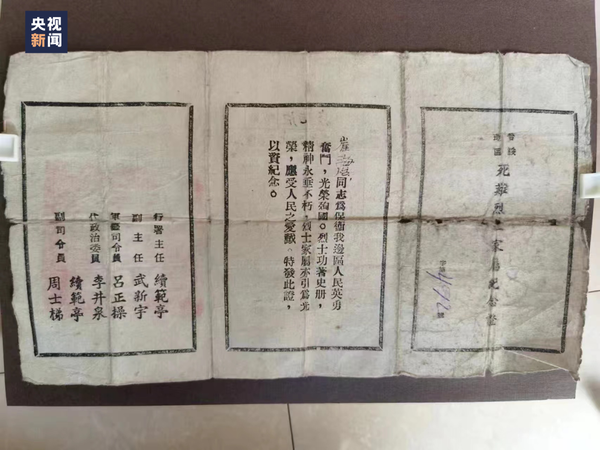 央视
新闻
晉綏
邊區
死難烈士家屬紀念證
字第 號
崔同志為保衛我邊區人民英勇
奮鬥，光榮殉國。烈士功著史册，
精神永垂不朽，烈士家屬亦引為光
榮，應受人民之愛戴。特發此證，
以資紀念。
行署主任 續範亭
副主任 武新宇
軍區司令員 呂正操
代政治委員 李井泉
副司令員 續範亭
周士梯